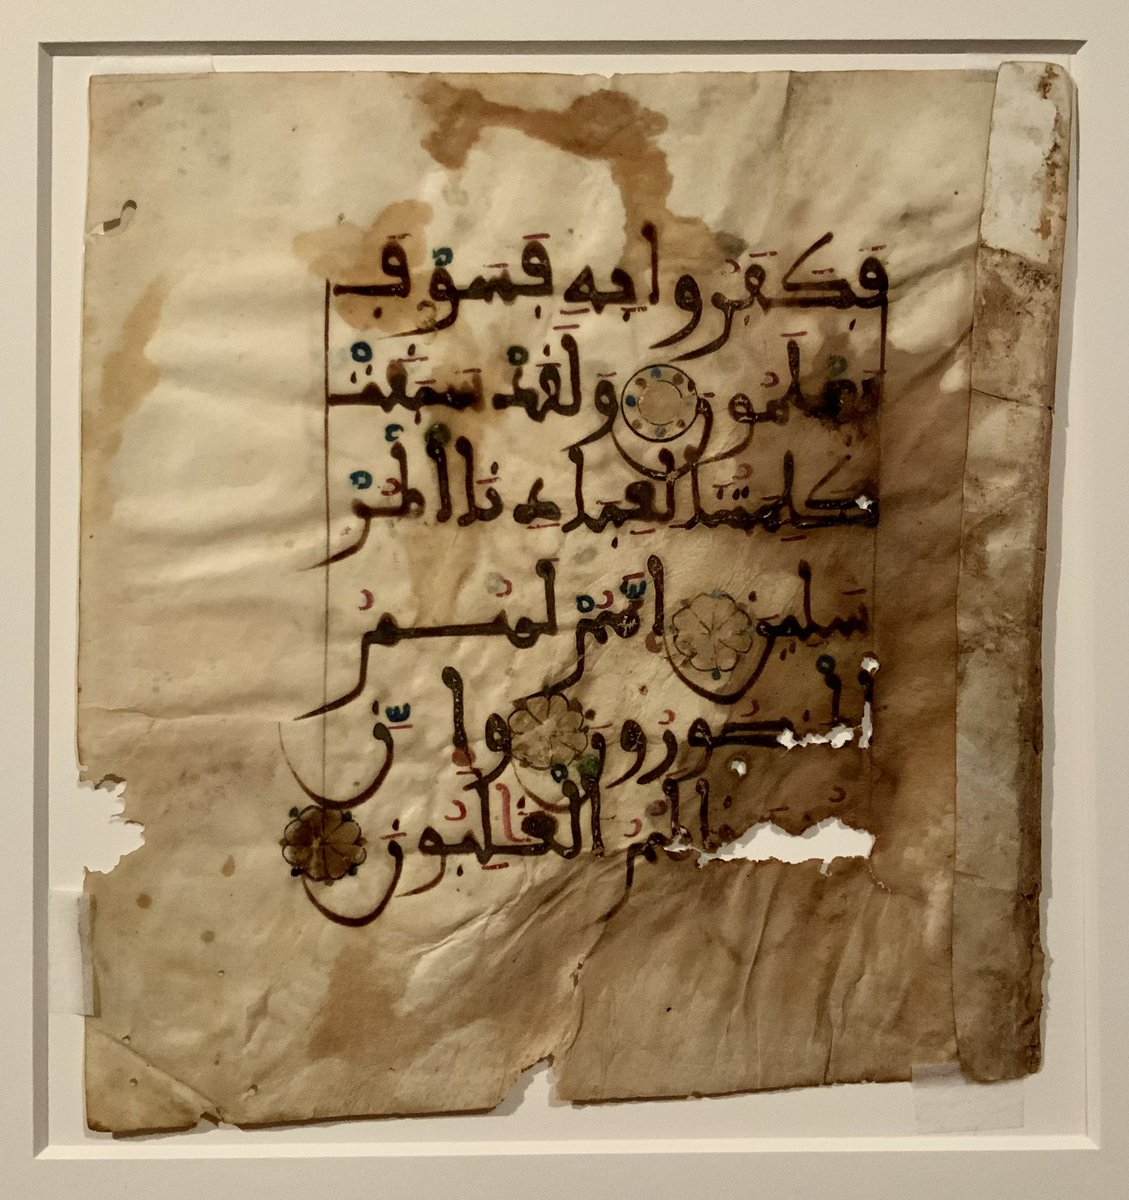 فَكَفَرُوا بِهِ فَسَوْفَ
يَعْلَمُونَ وَلَقَدْ سَبَقَتْ
كَلِمَتُنَا لِعِبَادِنَا الْمُرْ
سَلِينَ إِنَّهُمْ لَهُمُ
الْمَنصُورُونَ وَإِنَّ
لَهُمُ الْغَٰلِبُونَ